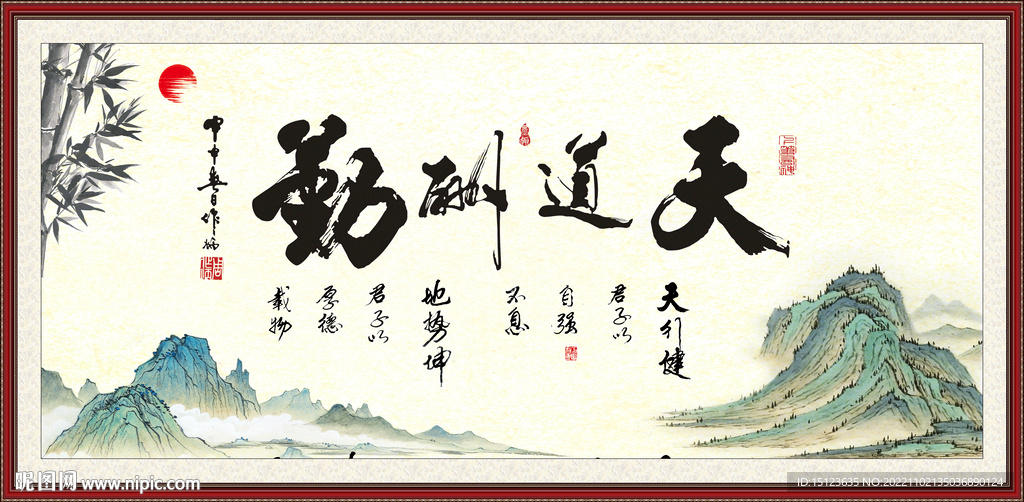 天道酬勤
天行健
君子以
自强
不息
地势坤
君子以
厚德
载物
昵图网 www.nipic.com
ID:15123635 NO:20221102135036890124